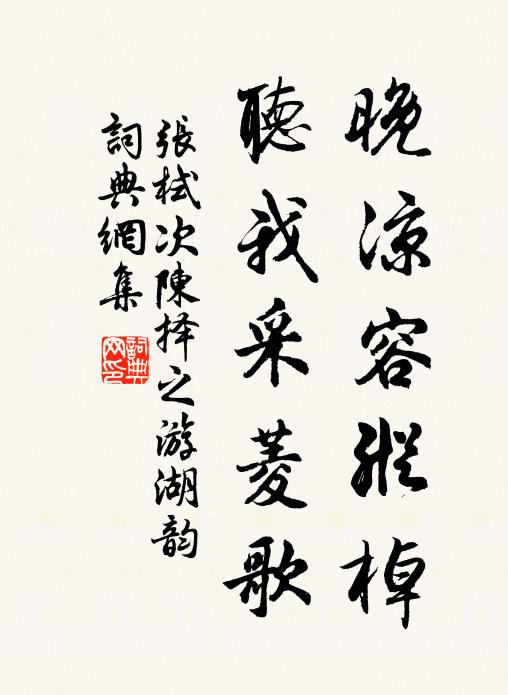 晚涼容縱棹
聽我采菱歌
張栻次陳择之游湖韵
詞典網集
詞典网印